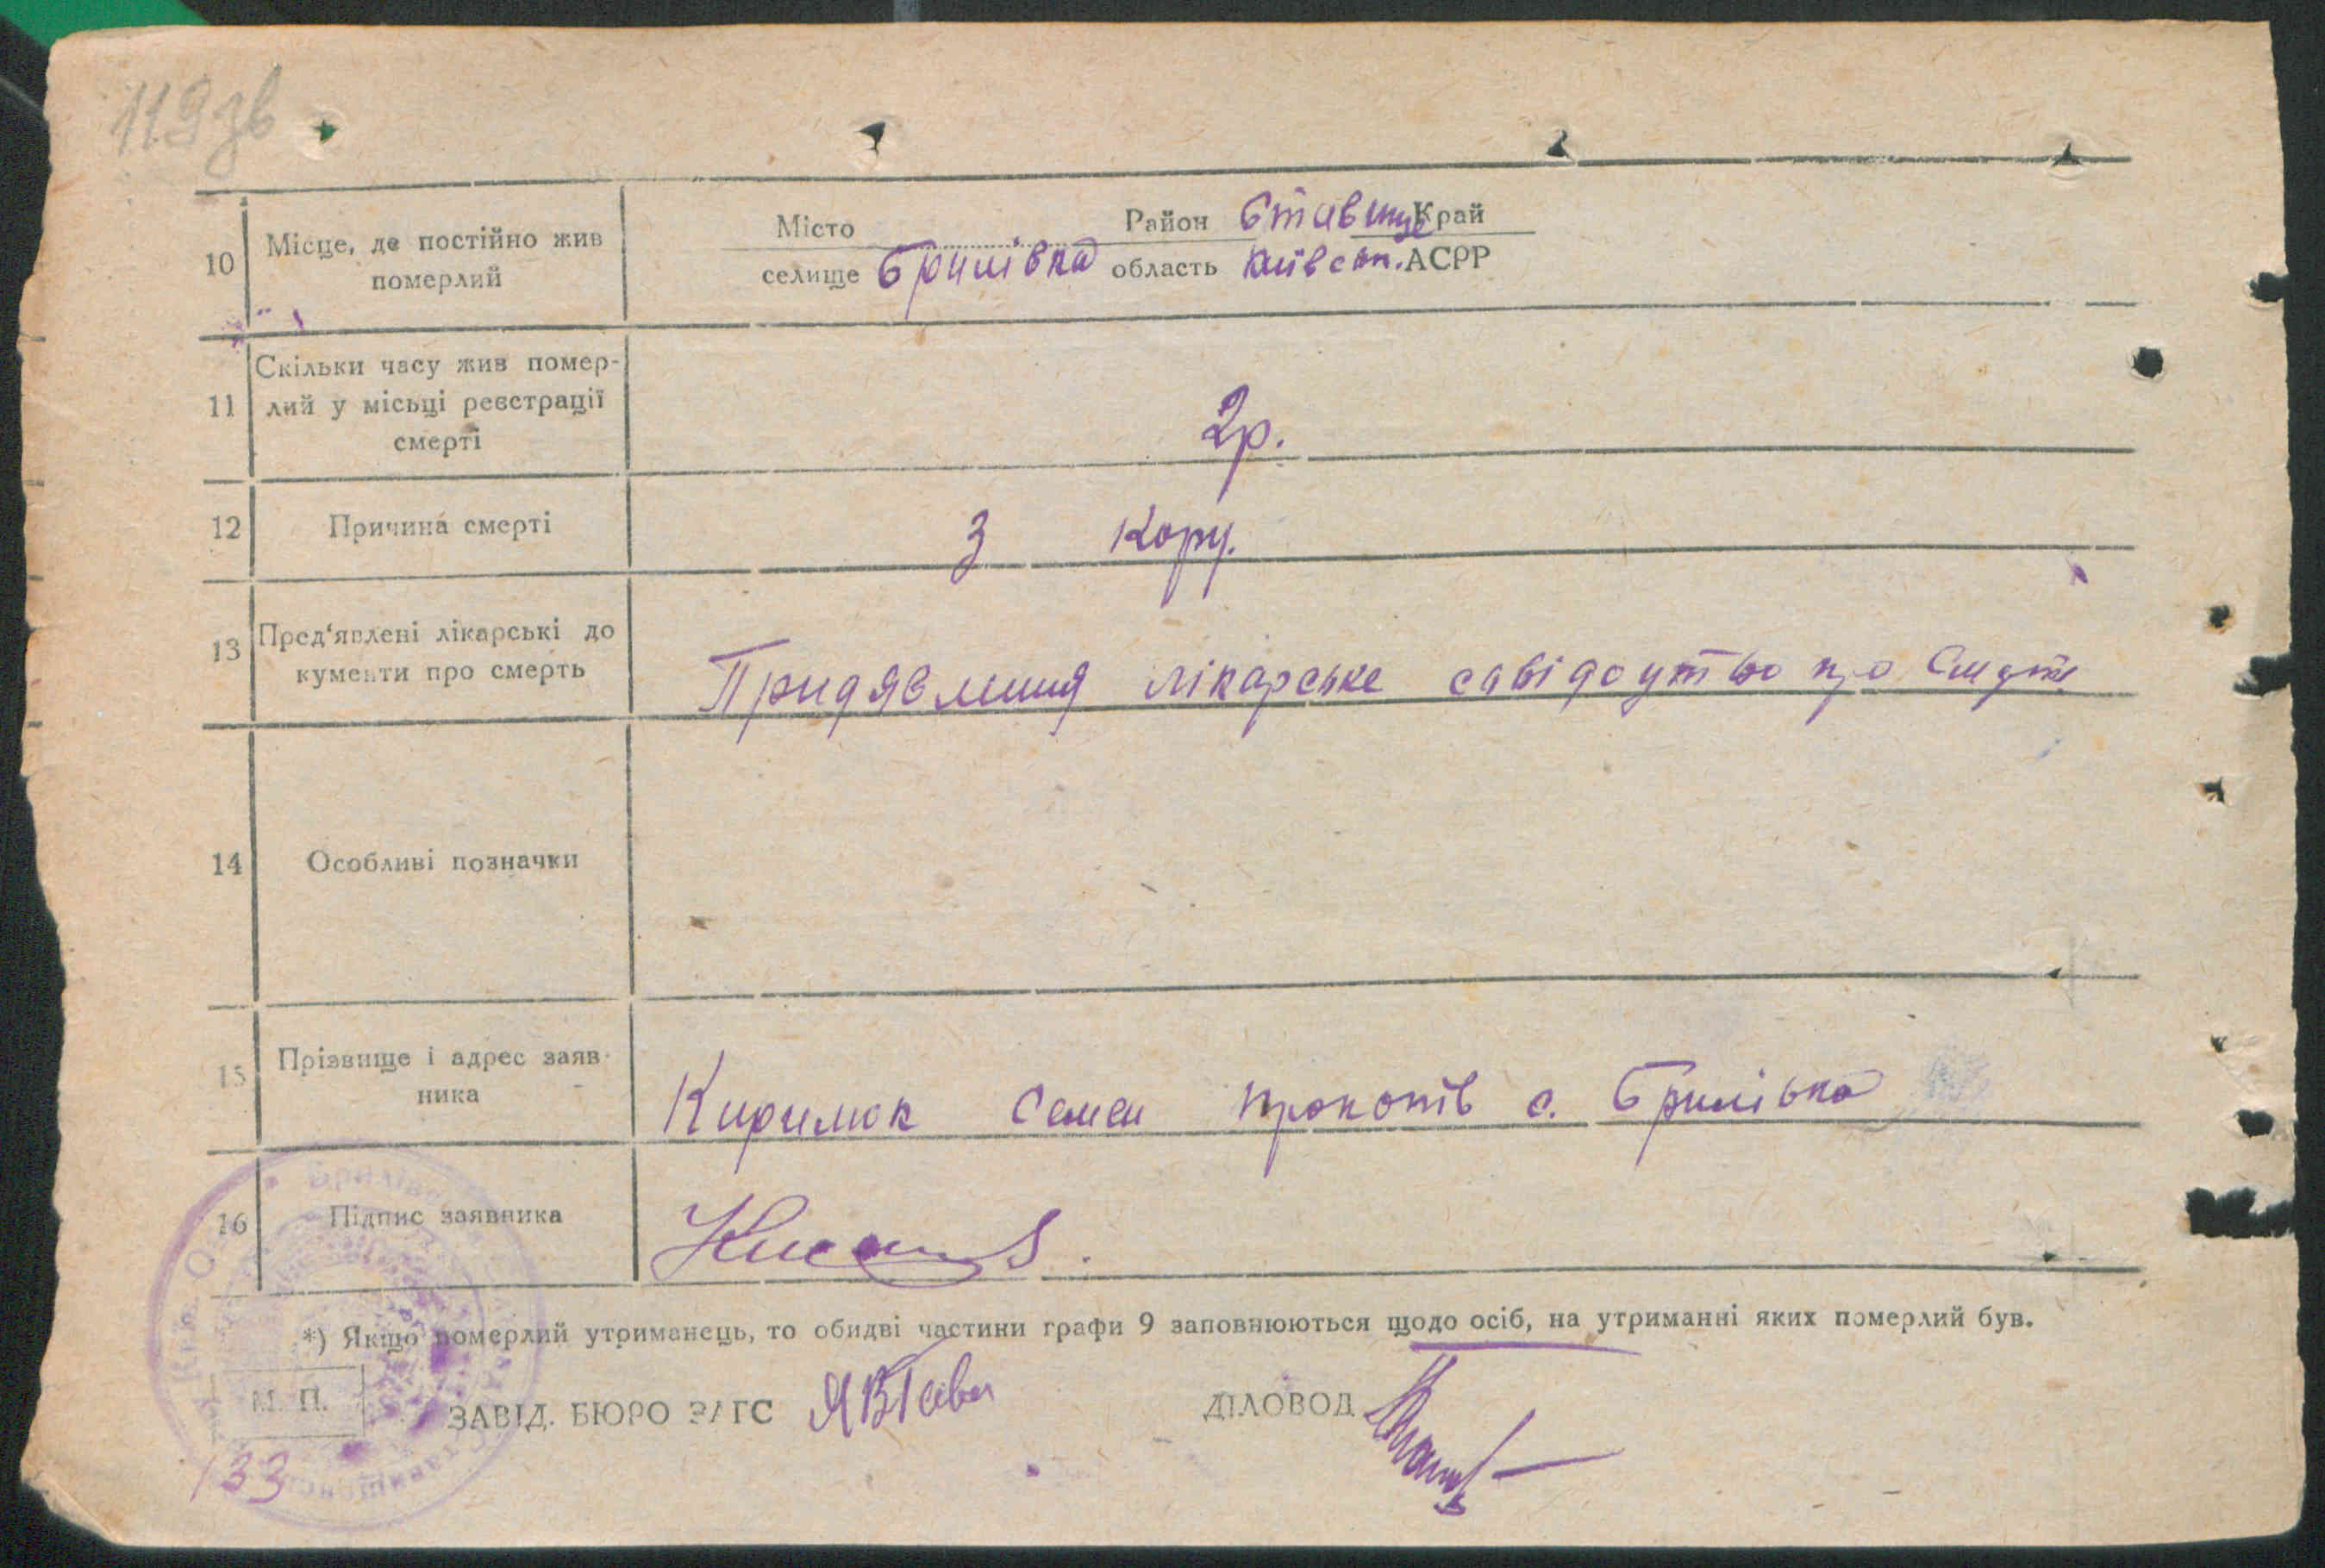 119зв
10 Місце, де постійно жив
померлий
Місто Район Ставище Край
селище Брилівка область Київськ. АСРР
11 Скільки часу жив помер-
лий у місьці реєстрації
смерті
2р.
12 Причина смерті З кору.
13 Пред'явлені лікарські до
кументи про смерть
лікарське про
14 Особливі позначки
15 Прізвище і адрес заяв-
ника
Кирилюк Семен Прокопів с. Брилівка
16 Підпис заявника
*) Якщо померлий утриманець, то обидві частини графи 9 заповнюються щодо осіб, на утриманні яких померлий був.
М. П.
ЗАВІД. БЮРО ЗАГС ДІЛОВОД
133